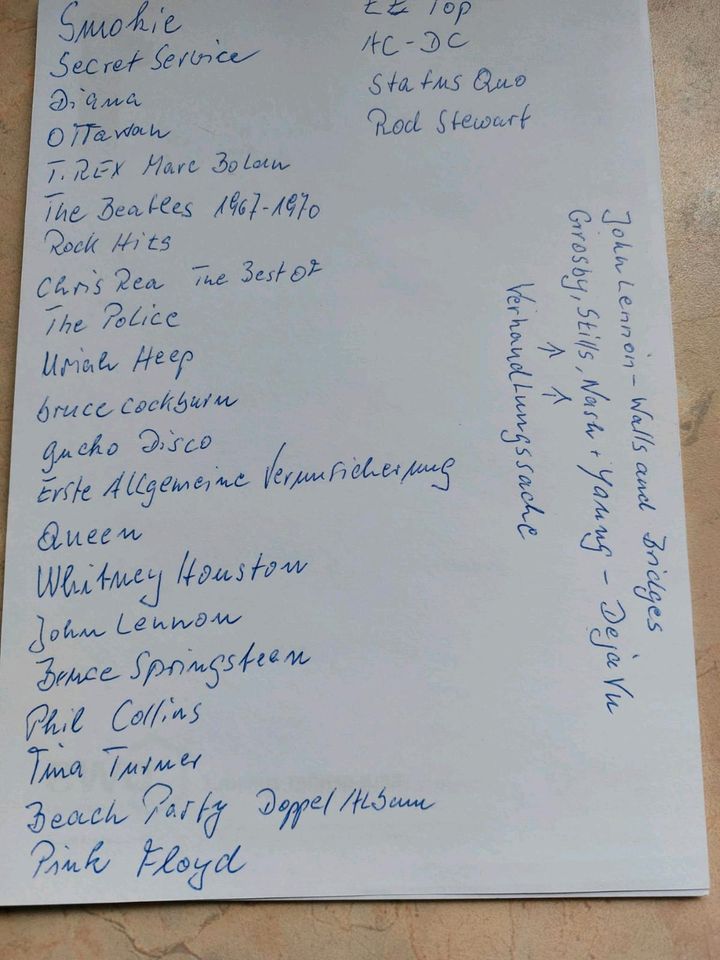 Smokie
Secret Service
Diana
Ottawan
T.REX Marc Bolan
The Beatles 1967-1970
Rock Hits
Chris Rea The Best Of
The Police
Uriah Heep
bruce cockburn
gucho Disco
Erste Allgemeine Verunsicherung
Queen
Whitney Houston
John Lennon
Bruce Springsteen
Phil Collins
Tina Turner
Beach Party Doppel Album
Pink Floyd
ZZ Top
AC-DC
Status Quo
Rod Stewart
John Lennon - Walls and Bridges
Crosby, Stills, Nash + Young - Deja Vu
↑ ↑
Verhandlungssache